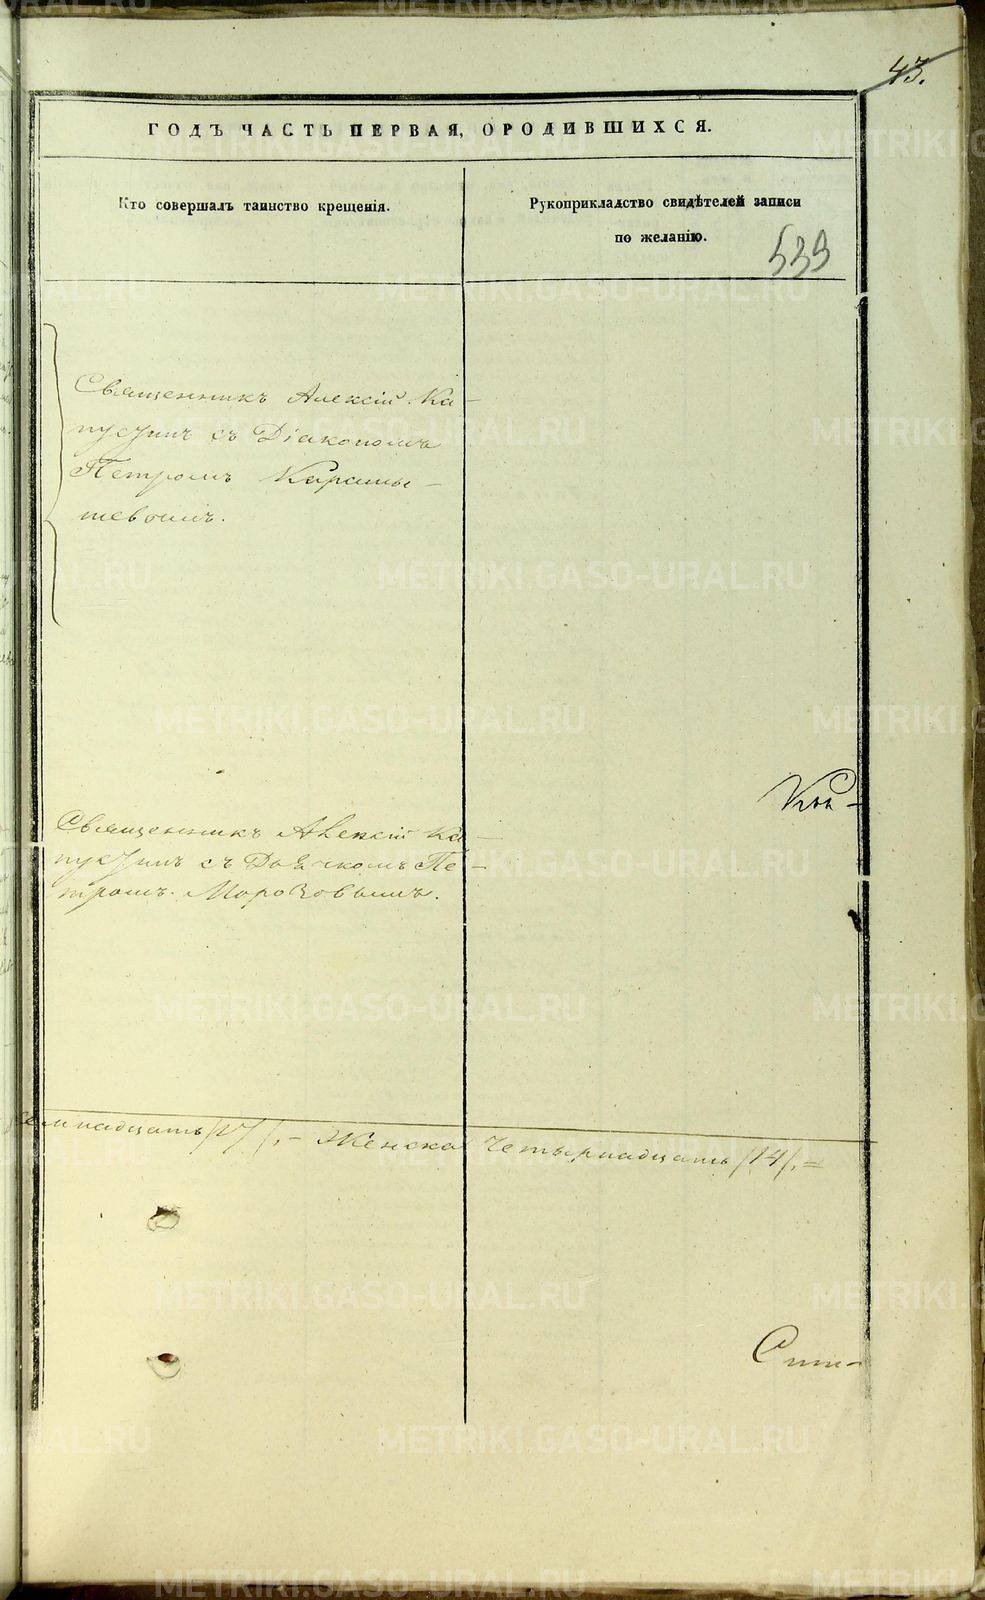 43.
ГОДЪ ЧАСТЬ ПЕРВАЯ, О РОДИВШИХСЯ.
Кто совершалъ таинство крещенія.
Рукоприкладство свидѣтелей записи
по желанію.
539
Священникъ Алексій Ка-
пустинъ съ Діакономъ
Петромъ Карамы-
шевымъ.
Священникъ Алексій Ка-
пустинъ съ Дьячкомъ Пе-
тромъ Морозовымъ.
семнадцать /17/, - Женска четырнадцать /14/. =
METRIKI.GASO-URAL.RU